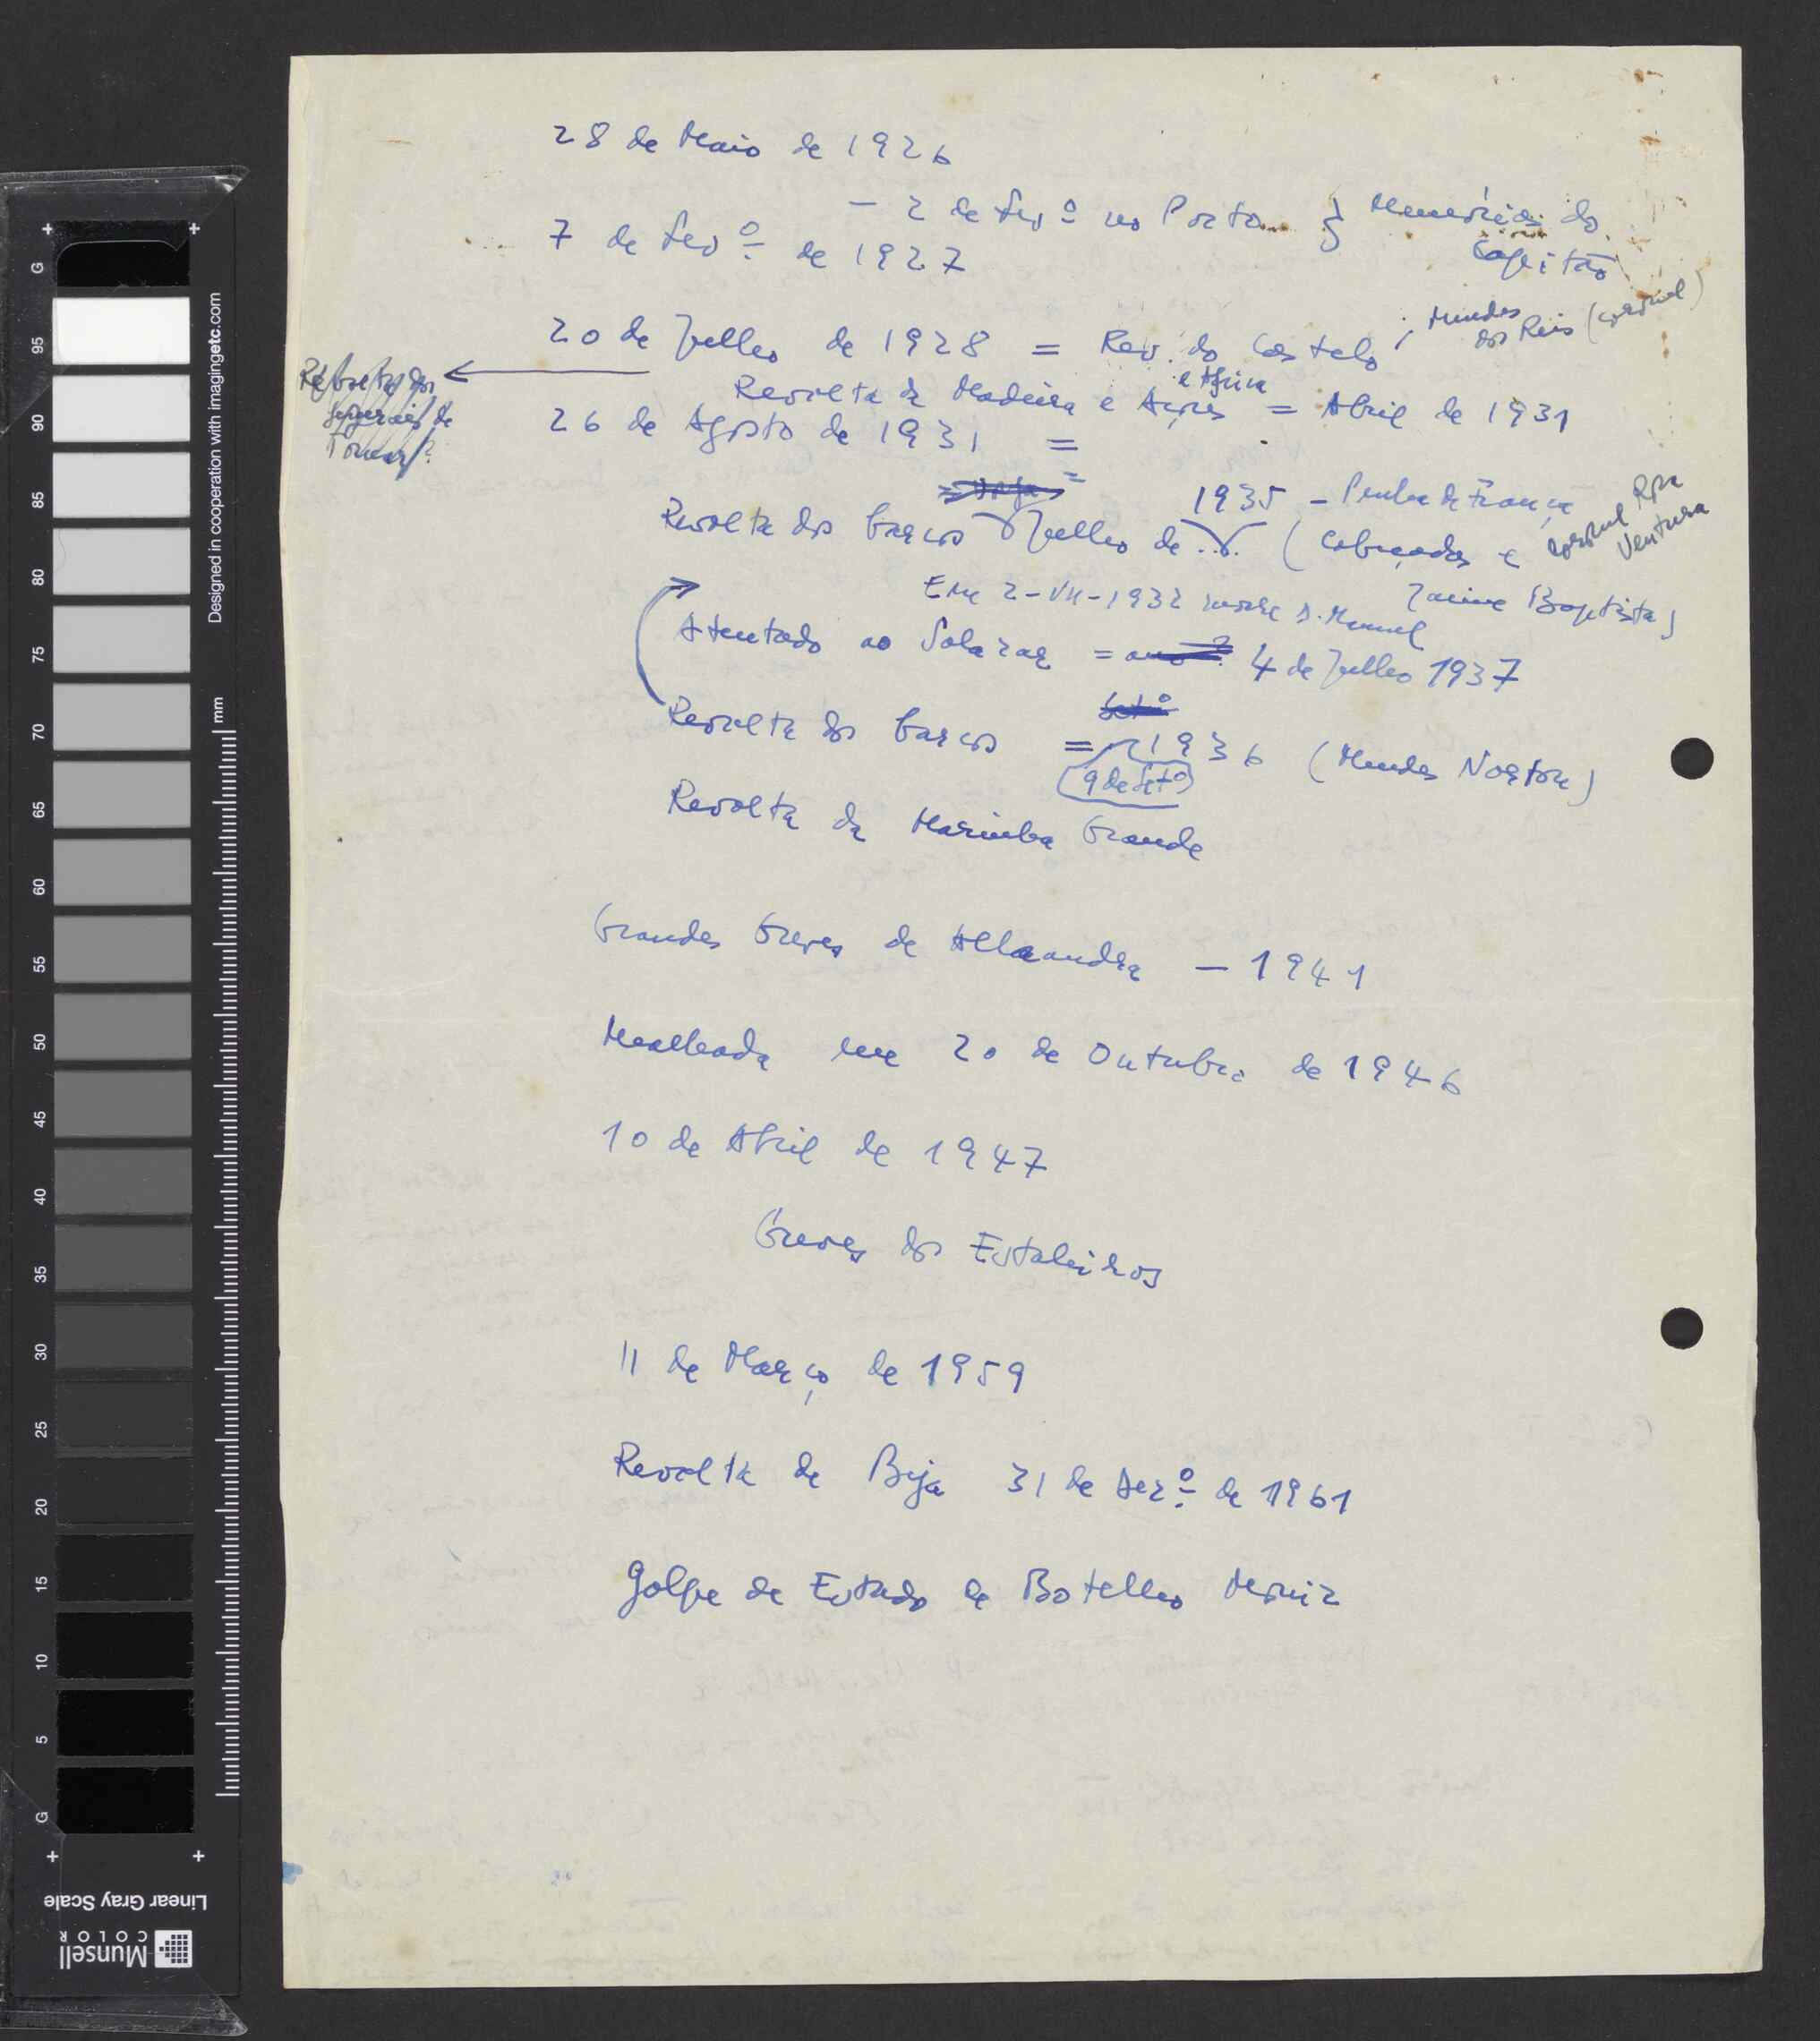 28 de Maio de 1926
— 2 de Fevº no Porto } Memórias do
7 de Fevº de 1927
Capitão
20 de Julho de 1928 = Rev. do Castelo ; Mendes
dos Reis (coronel)
Revolta dos
Generais de
Tomar?
Revolta da Madeira e Açores e África = Abril de 1931
26 de Agosto de 1931 =
1935 – Penha de França
Revolta dos barcos Julho de (Cabeçadas e coronel
Ventura
Em 2-VII-1932 morre D. Manuel
Jaime Baptista)
Atentado ao Salazar = ano? 4 de Julho 1937
Setº
Revolta dos barcos = 1936 (Mendes Norton)
9 de Setº
Revolta da Marinha Grande
Grandes Greves de Alhandra — 1941
Mealhada em 20 de Outubro de 1946
10 de Abril de 1947
Greves dos Estaleiros
11 de Março de 1959
Revolta de Beja 31 de Dezº de 1961
Golpe de Estado de Botelho Moniz
G 95 90 85 80 75 70 65 60 55 50 45 40 35 30 25 20 15 10 5 G
Designed in cooperation with imagingetc.com
mm
Linear Gray Scale
Munsell
COLOR